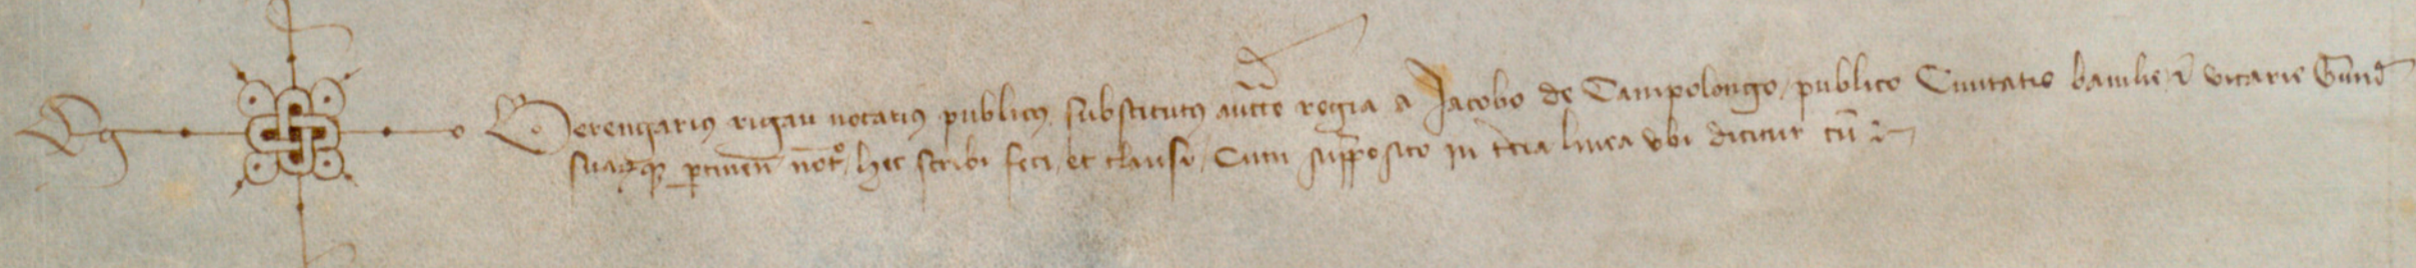 Eg Berengarius rigau notarius publicus substitutus aucte regia a Jacobo de Campolongo, publico Civitatis baiulie et vicarie Gund
suarumque pertinen not, hec scribi feci, et clausi, Cum supraposito in tercia linea ubi dicitur cum